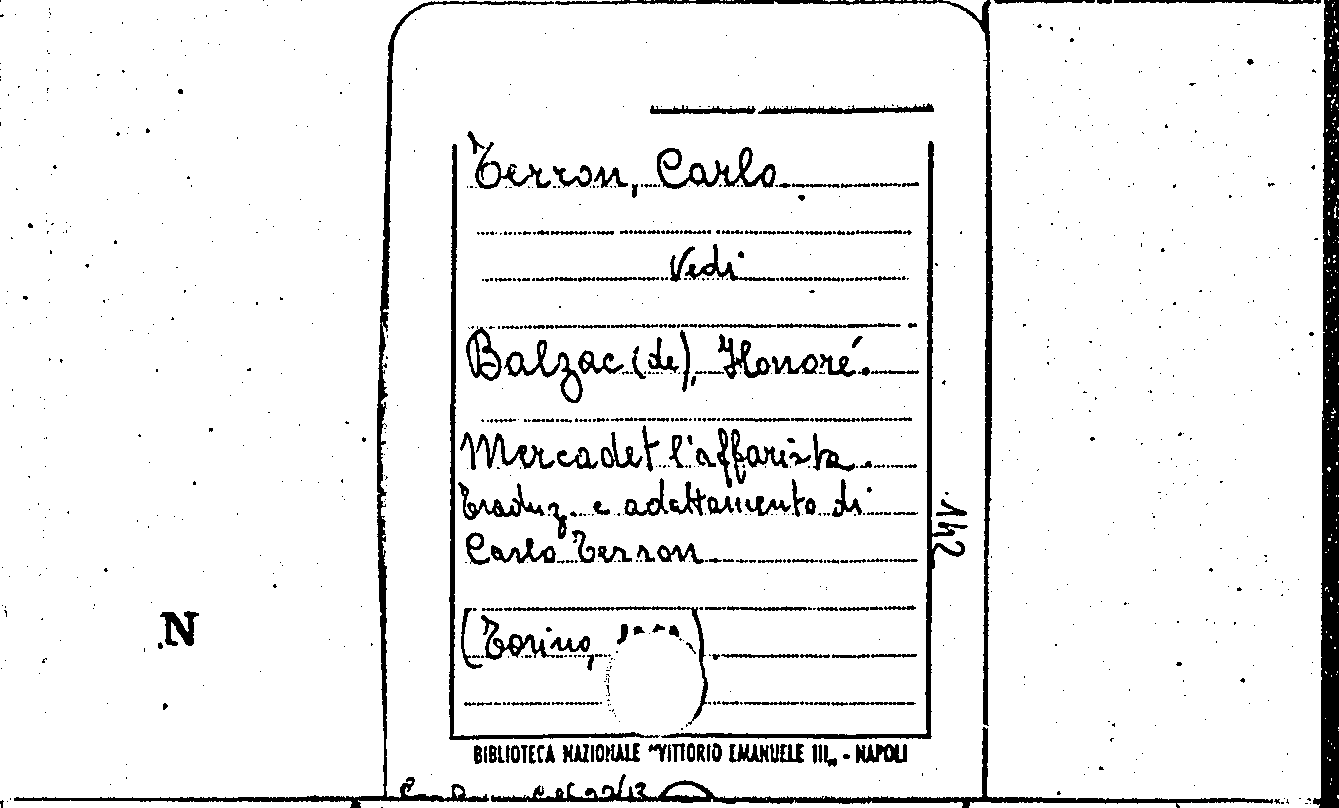 Terron, Carlo
Vedi
Balzac (de), Honoré.
Mercadet l'affarista.
Traduz. e adattamento di
Carlo Terron
(Torino, )
142
N
BIBLIOTECA NAZIONALE "VITTORIO EMANUELE III„ - NAPOLI